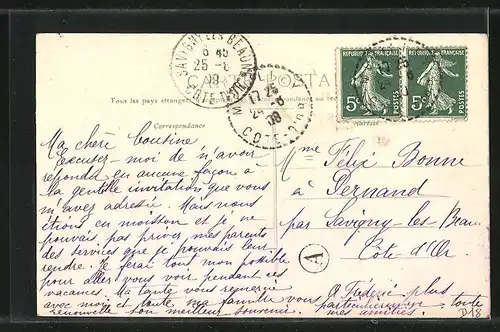 SAVIGNY-LES-BEAUNE
6 45
25 - 8
08
CÔTE D'OR
17 25
08
COTE
CARTE POSTALE
REPUBLIQUE FRANÇAISE
REPUBLIQUE FRANÇAISE
5c
POSTES
5c
POSTES
Tous les pays étrangers
Correspondance
Ma chère Cousine
Excusez-moi de n'avoir
répondu en aucune façon à
la gentille invitation que vous
m'avez adressée. Mais nous
étions en moisson et je ne
pouvais pas priver mes parents
des services que je pouvais leur
rendre. Je ferai tout mon possible
pour aller vous voir pendant ces
vacances. Ma tante vous remercie
avec moi et toute ma famille vous
renouvelle son meilleur souvenir.
Mme Félix Bonne
à Pernand
par Savigny-les-Beaune
Côte-d'Or
A
à Frédéric plus
particulièrement toute
mes amitiés.
D18